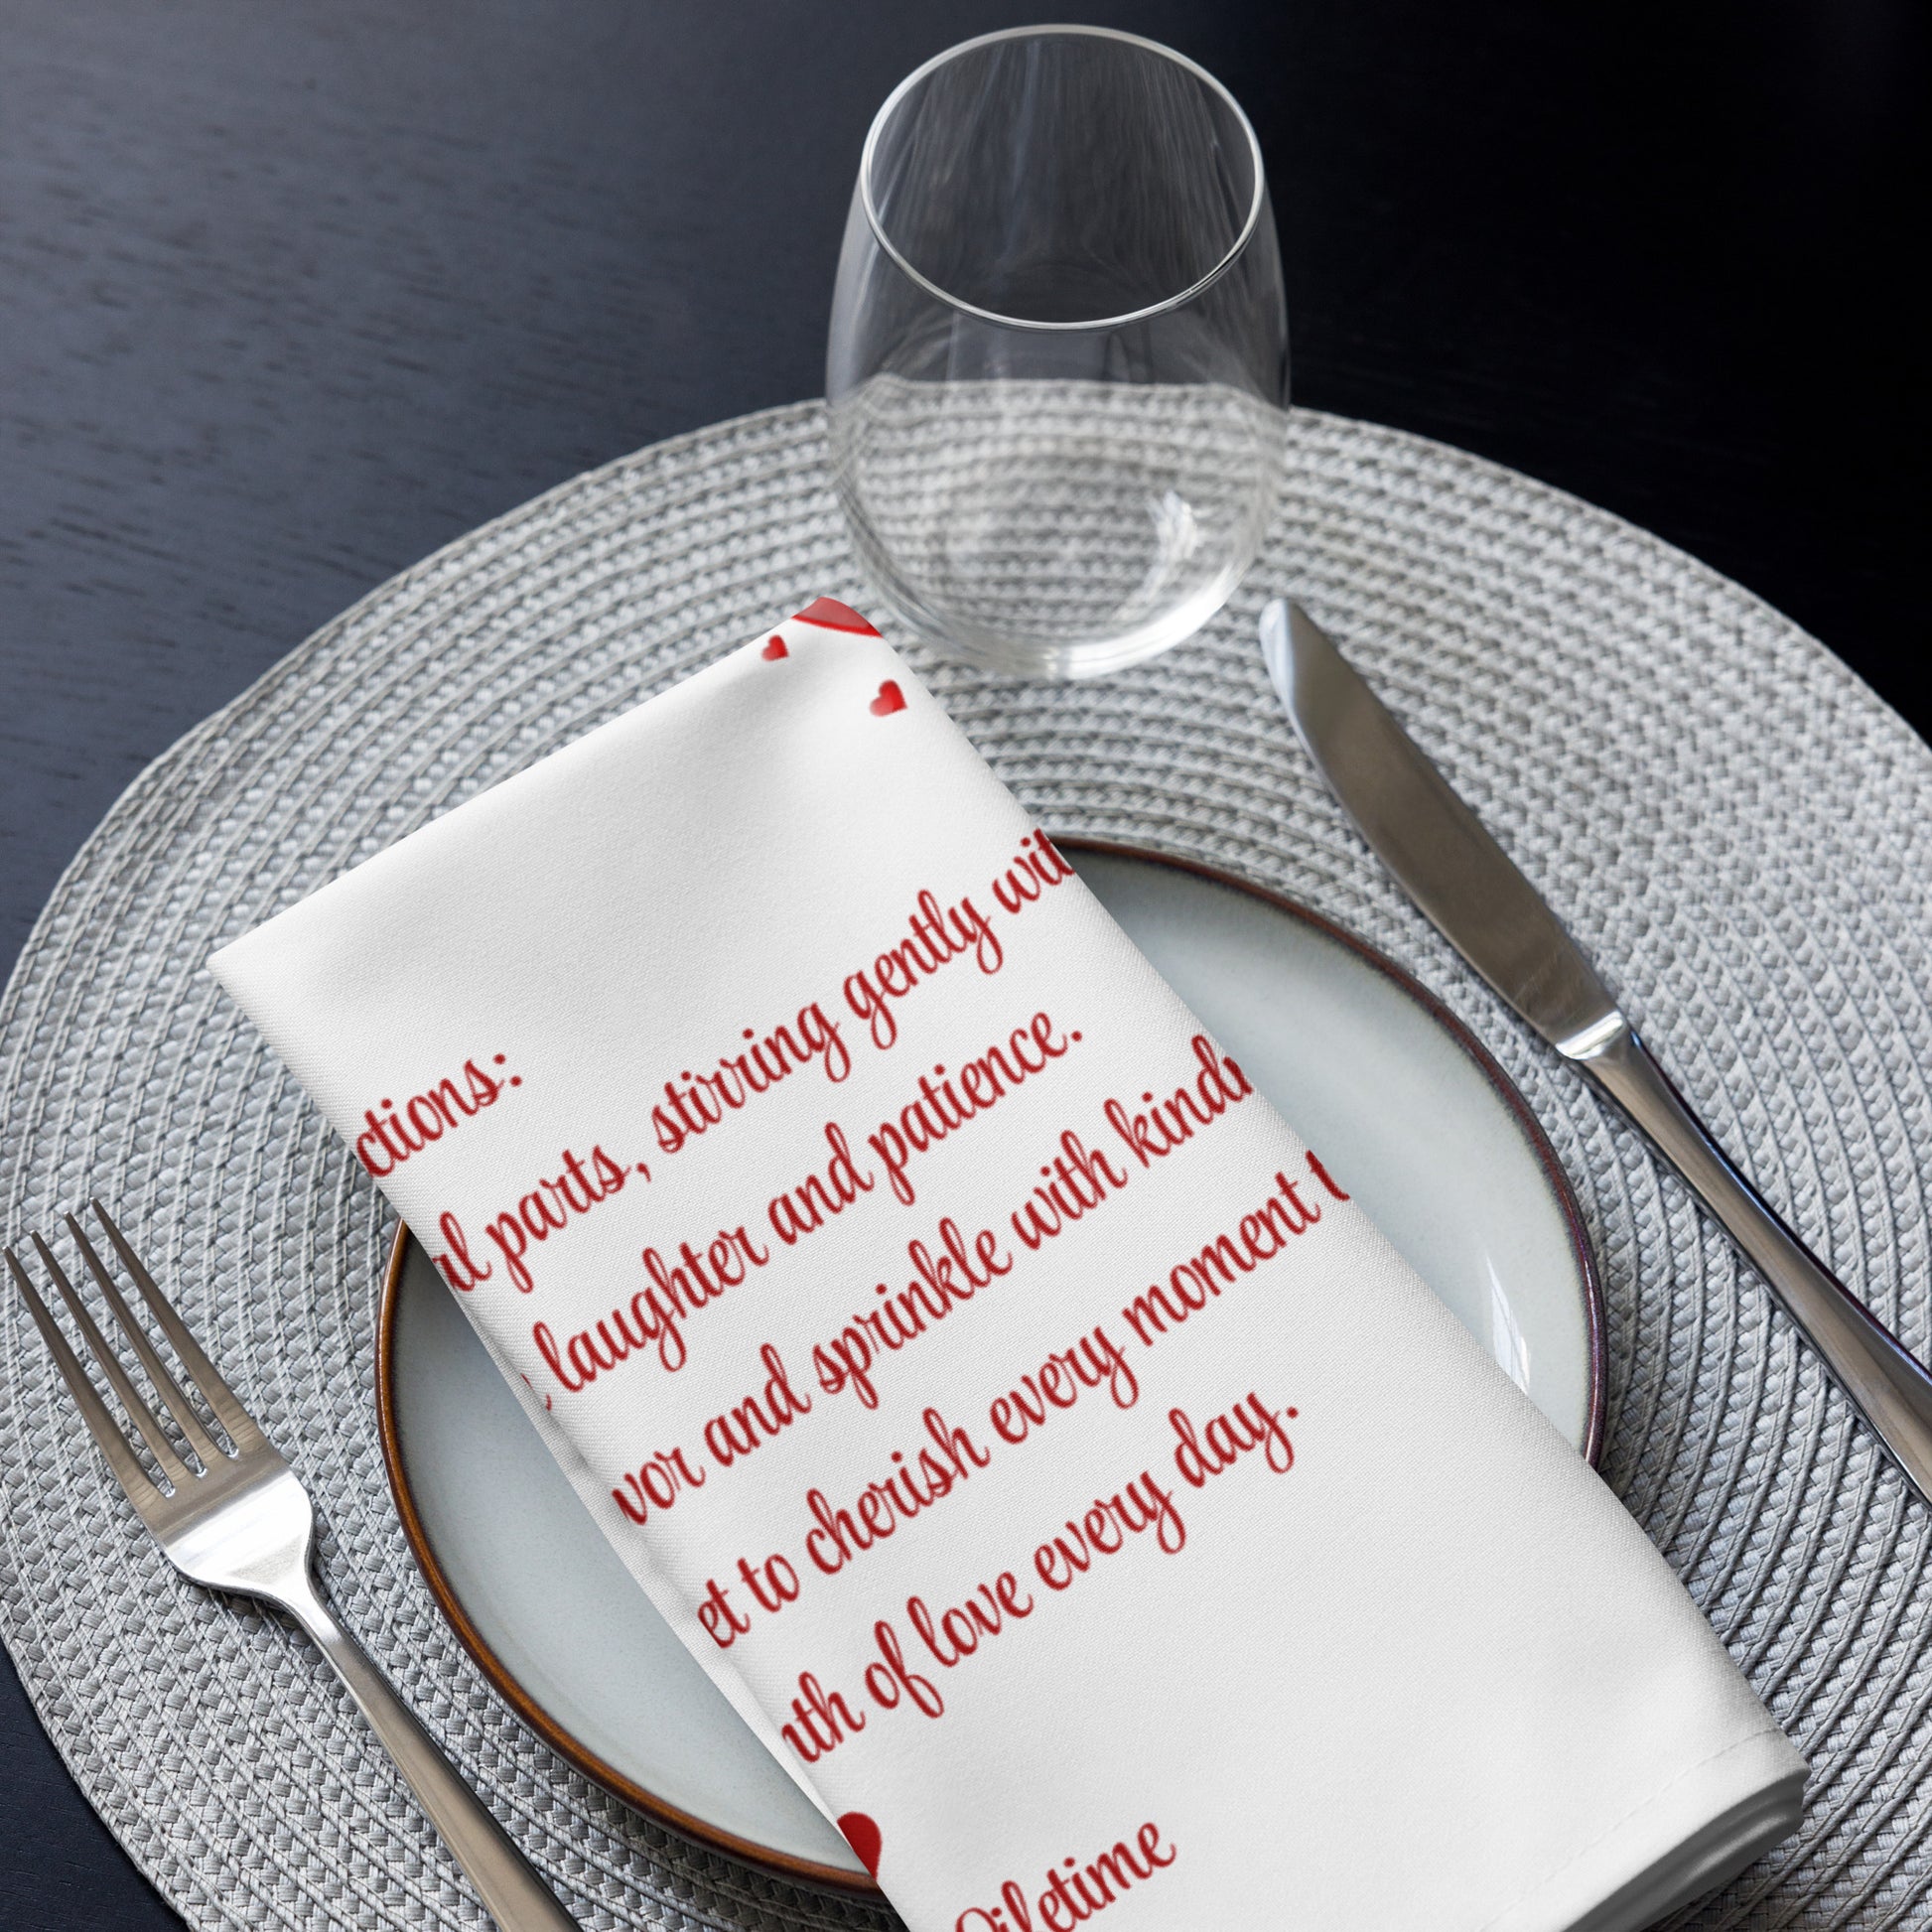 ctions:
al parts, stirring gently wit
laughter and patience.
vor and sprinkle with kindn
et to cherish every moment t
mth of love every day.